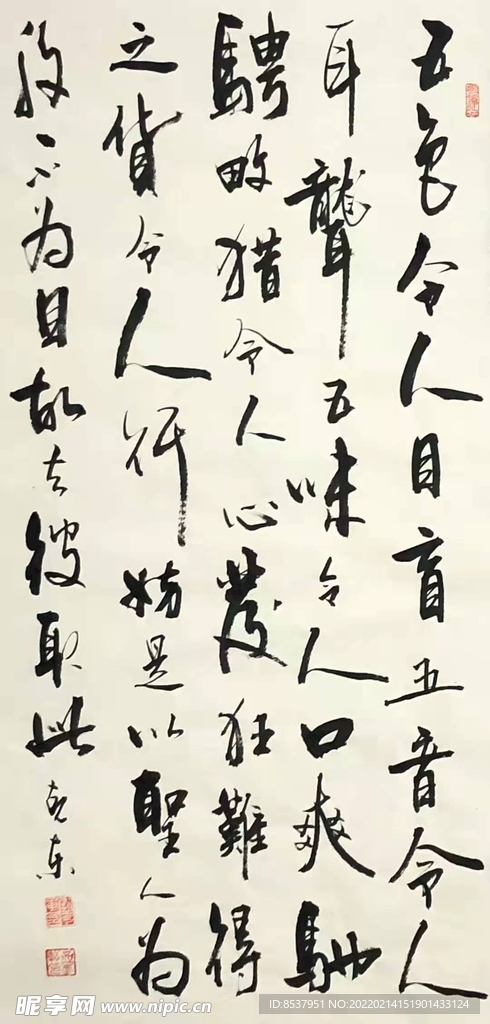 五色令人目盲五音令人
耳聾五味令人口爽馳
騁畋猎令人心發狂難得
之貨令人行妨是以聖人为
腹不为目故去彼取此
克东
昵享网 www.nipic.cn
ID:8537951 NO:20220214151901433124